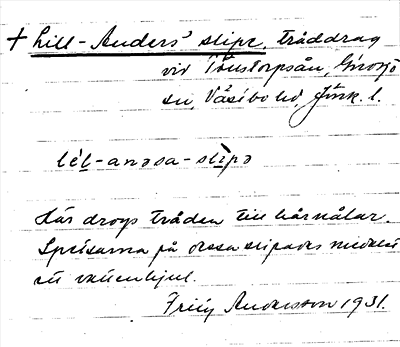 + Lill-Anders' slipe, tråddrag
vid Tönstorpsån, Gnosjö
sn, Västbo hd, Jönk. l.
lèl-anəsa-slipə
Här drogs tråden till hårnålar.
Spetsarna på dessa slipades medelst
ett vattenhjul.
Andersson 1931.